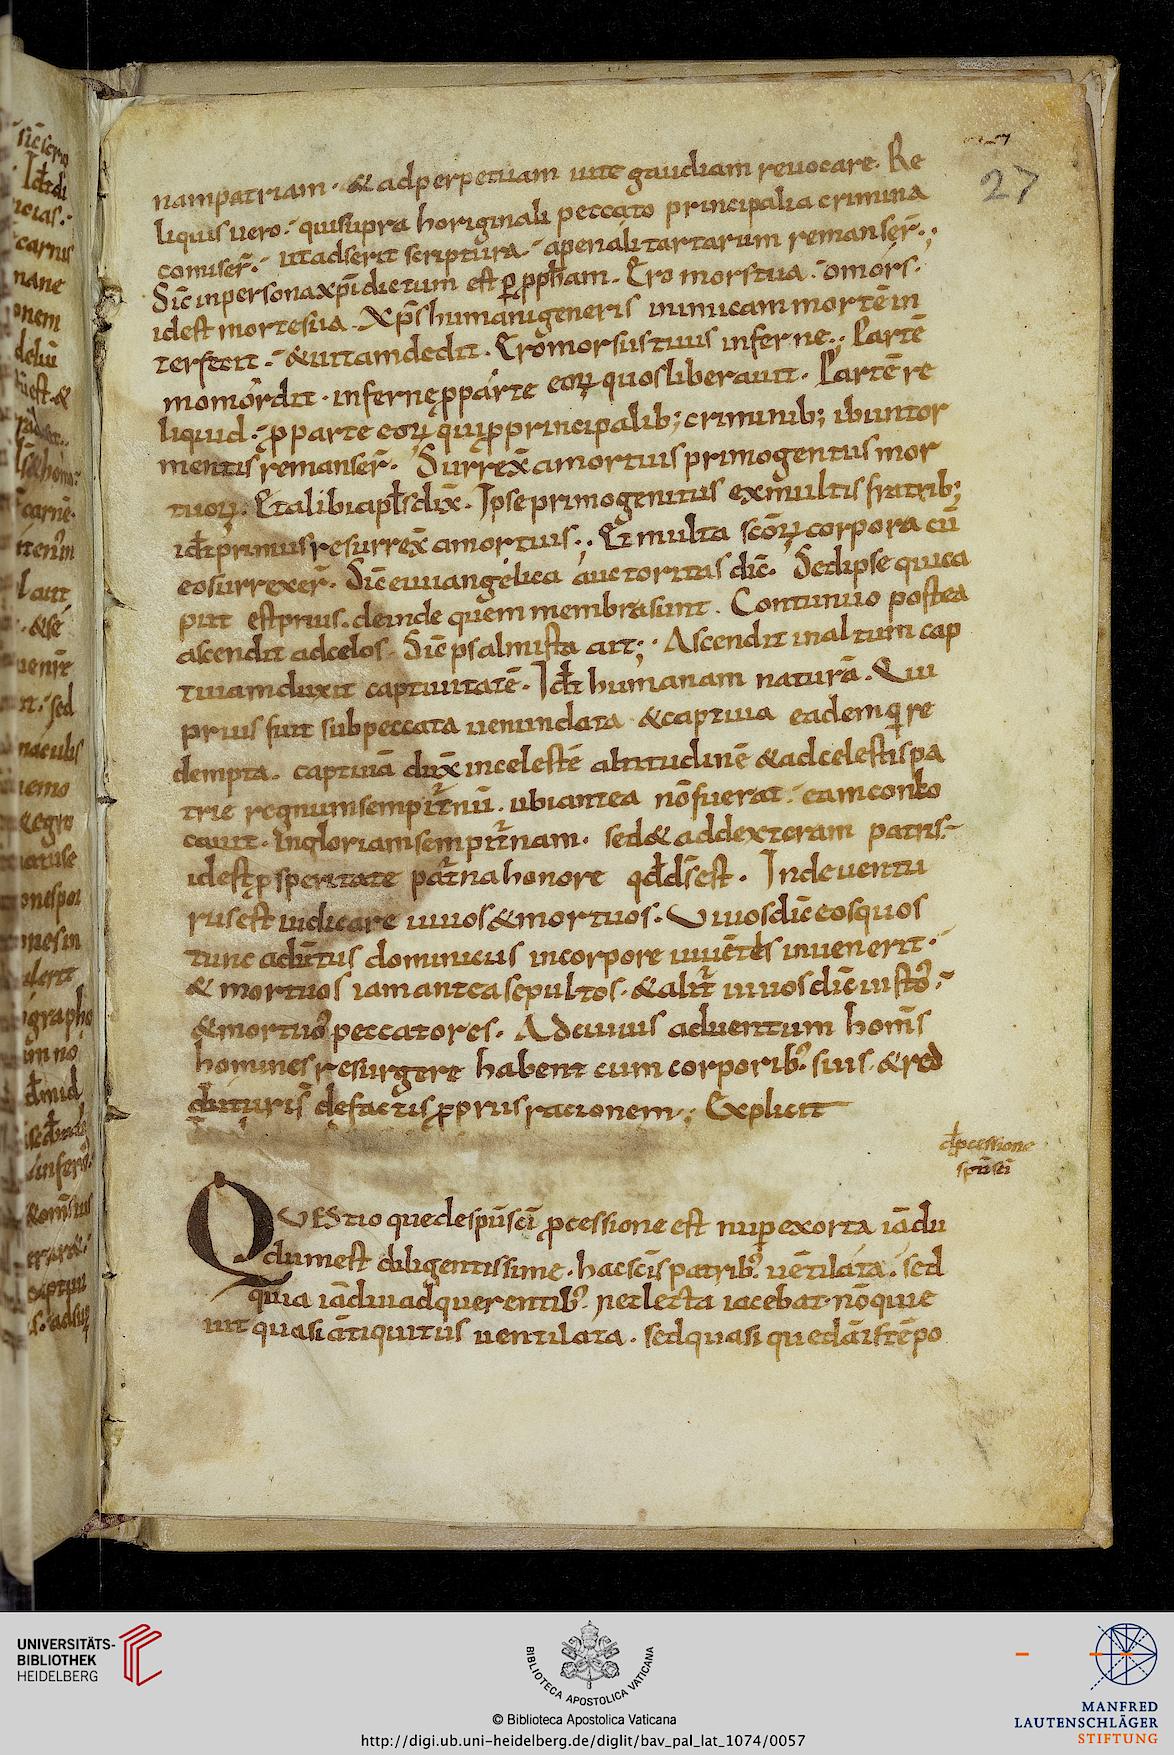 27
nampatriam · & adperpetuam uite gaudiam reuocare. Re
liquis uero · quisupra horiginali peccato principalia crimina
comiser̄ · utadserit scriptura · apenali tartarum remanser̄ ·,
Sic̄ inpersona xp̄i dictum est ꝑ pp̄ham. Ero morstua · omors ·
idest mortesua. Xp̄s humanigeneris inimicam mortē in
terfecit · & uitamdedit. Ero morsustuus inferne ·, Partē
momordit · inferne ꝓ parte eoꝝ quosliberauit. Partē re
liquid · ꝓ parte eoꝝ qui ꝓ principalib; criminib; ibuntor
mentis remanser̄. Surrex̄ amortuis primogenitus mor
tuoꝝ. Et alibi apl̄s dix̄. Ipse primogenitus exmultis fratrib;
id ē primus resurrex̄ amortuis ·, Et multa sc̄oꝝ corpora cū
eo surrexer̄. Sic̄ euuangelica auctoritas dic̄. Sed ipse qui ca
put est prius · deinde quem membra sunt. Continuo postea
ascendit adcelos. Sic̄ psalmista ait; · Ascendit inaltum cap
tiuamduxit captiuitatē. Id ē humanam naturā. Qui
prius fuit subpeccata uenundata & captiua eadem q; re
dempta. captiuā dux̄ incelestē altitudinē & adcelestis pa
trie regnum sempit̄nū. ubiantea nō fuerat · eam conlo
cauit. Ingloriam sempit̄nam. sed & addexteram patris ·
idest ꝓsperitate pat̄na honore qd̄ d̄s est. Inde uentu
rus est iudicare uiuos & mortuos. Uiuos dic̄ eos quos
tunc aduētus dominicus incorpore uiuētes inuenerit ·
& mortuos iam antea sepultos · & alit̄ uiuos dic̄ iustos ·
& mortuos peccatores. Ad cuius aduentum hom̄s
homines resurgere habent cum corporib; suis · & red
dituri s̄ de factis ꝓpriis racionem ·, Explicit
d̄ ꝓcessione
sp̄u sc̄i
QUEStio que de sp̄u sc̄i ꝓcessione est nuꝑ exorta iā du
dum est diligentissime · hac sc̄is patrib; uētilata · sed
quia iā diu adquerentib; neclecta iacebat · nō quie
uit quasi ātiquitus uentilata · sed quasi quedā istē po
UNIVERSITÄTS-
BIBLIOTHEK
HEIDELBERG
BIBLIOTECA APOSTOLICA VATICANA
© Biblioteca Apostolica Vaticana
http://digi.ub.uni-heidelberg.de/diglit/bav_pal_lat_1074/0057
MANFRED
LAUTENSCHLÄGER
STIFTUNG